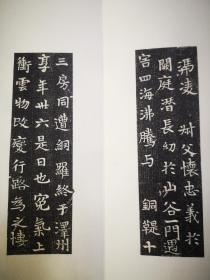 馮凌 州父懷忠義於
闕庭潛長幼於山谷門遇
害四海沸騰与 銅鞮十
三房同遭網羅終于澤州
享年卅六是日也寃氣上
衝雲物改變行路為之悽